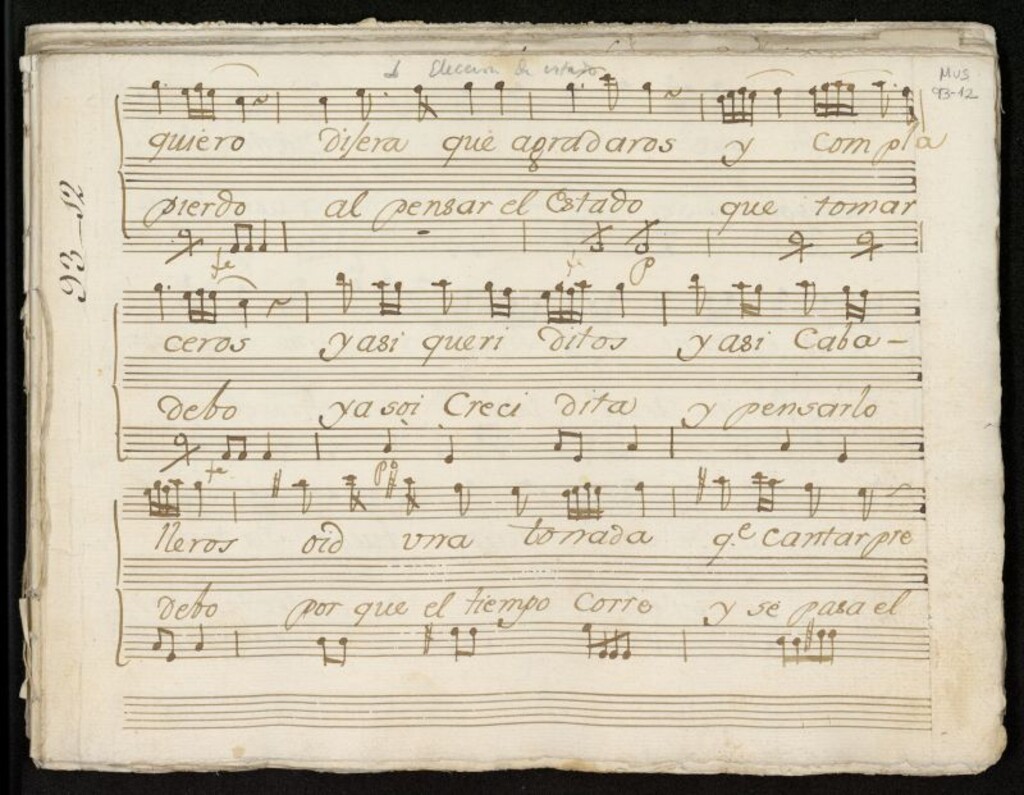 Eleccion de estado
MUS
93-12
93-12
quiero disera que agradaros y compla
pierdo al pensar el Estado que tomar
fe fe p
ceros y asi queri ditos y asi Caba-
debo ya soi Creci dita y pensarlo
fe po
lleros oid vna tonada qe cantar pre
debo por que el tiempo Corre y se pasa el